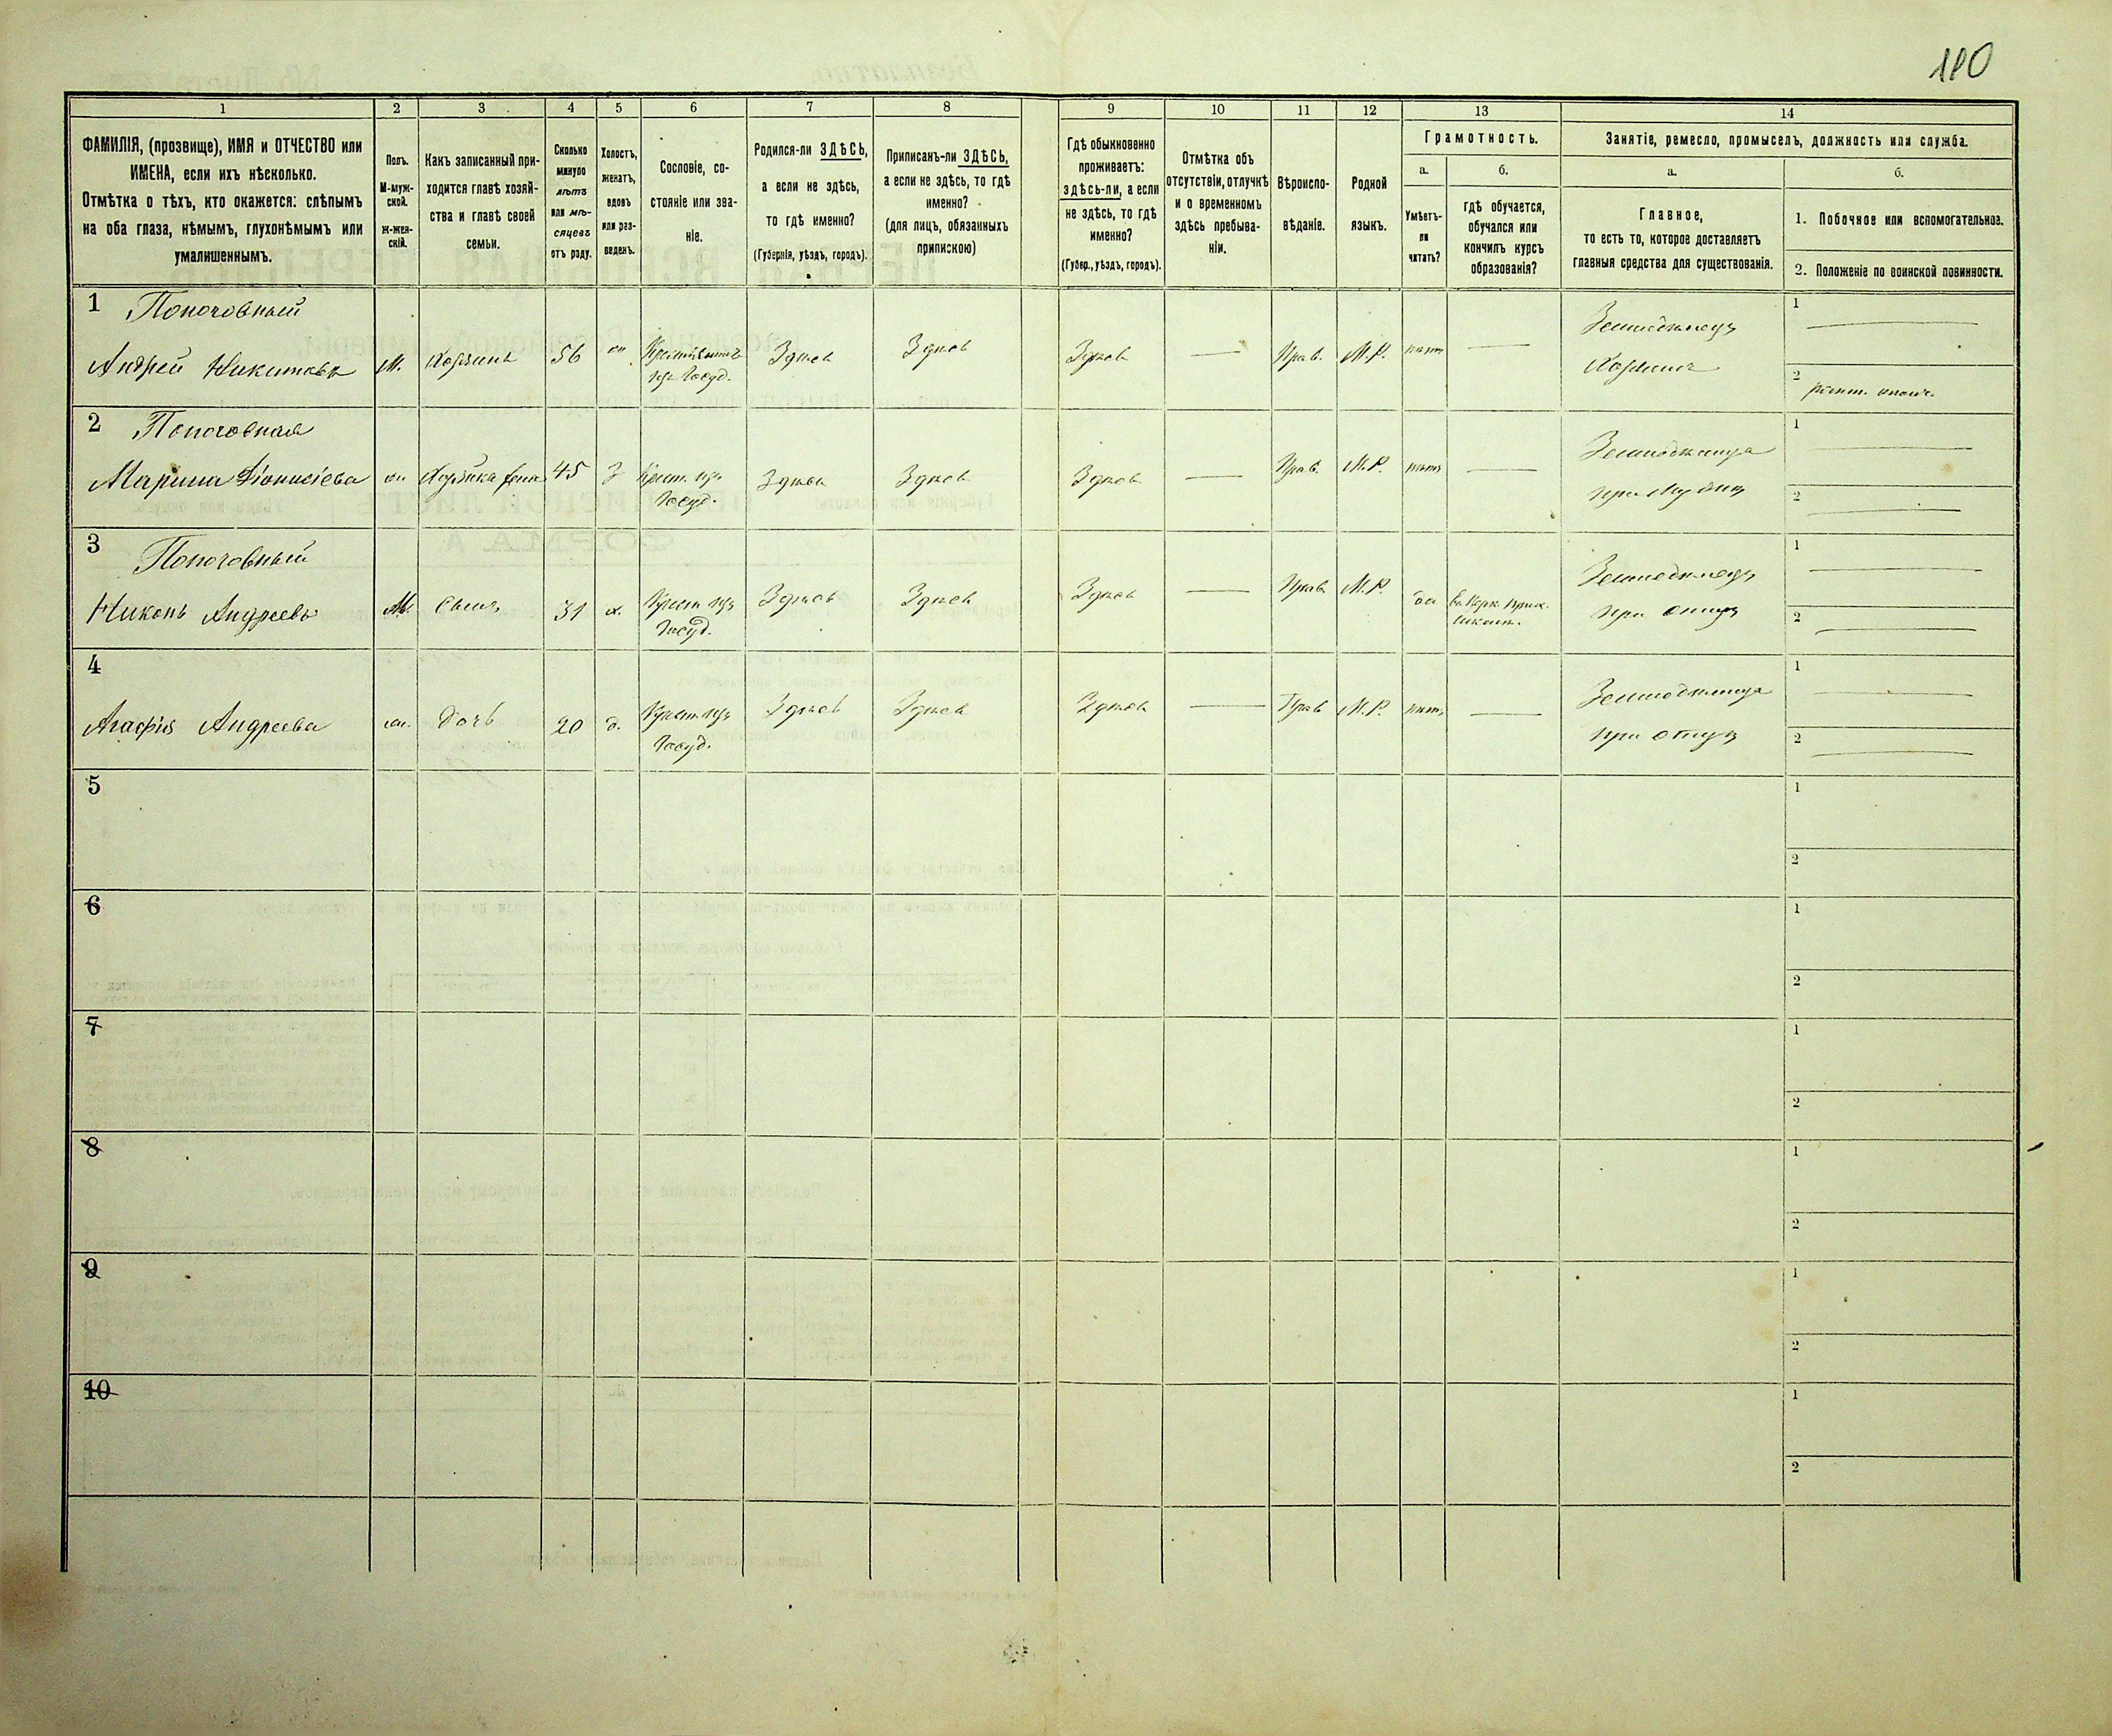 180
1 2 3 4 5 6 7 8 9 10 11 12 13 14
ФАМИЛІЯ, (прозвище), ИМЯ и ОТЧЕСТВО или
ИМЕНА, если ихъ нѣсколько.
Отмѣтка о тѣхъ, кто окажется: слѣпымъ
на оба глаза, нѣмымъ, глухонѣмымъ или
умалишеннымъ.
Полъ.
М-муж-
ской.
Ж-жен-
скій.
Какъ записанный при-
ходится главѣ хозяй-
ства и главѣ своей
семьи.
Сколько
минуло
лѣтъ
или мѣ-
сяцевъ
отъ роду.
Холостъ,
женатъ,
вдовъ
или раз-
веденъ.
Сословіе, со-
стояніе или зва-
ніе.
Родился-ли ЗДѢСЬ,
а если не здѣсь,
то гдѣ именно?
(Губернія, уѣздъ, городъ).
Приписанъ-ли ЗДѢСЬ,
а если не здѣсь, то гдѣ
именно?
(для лицъ, обязанныхъ
припискою)
Гдѣ обыкновенно
проживаетъ:
здѣсь-ли, а если
не здѣсь, то гдѣ
именно?
(Губер., уѣздъ, городъ).
Отмѣтка объ
отсутствіи, отлучкѣ
и о временномъ
здѣсь пребыва-
ніи.
Вѣроиспо-
вѣданіе.
Родной
языкъ.
Грамотность.
а.
Умѣетъ-
ли
читать?
б.
гдѣ обучается,
обучался или
кончилъ курсъ
образованія?
Занятіе, ремесло, промыселъ, должность или служба.
а.
Главное,
то есть то, которое доставляетъ
главныя средства для существованія.
б.
1. Побочное или вспомогательное.
2. Положеніе по воинской повинности.
1 Поночовный Земледѣлецъ 1
Андрей Никитовъ М. Хозяинъ 56 Крестьянинъ Здѣсь Здѣсь Здѣсь Прав. М.Р. нѣтъ Хозяинъ
изъ Госуд. 2
2 Поночовная Земледѣлица 1
Марина Діонисіева Хозяйка жена 45 З Крест. изъ Здѣсь Здѣсь Здѣсь Прав. М.Р. нѣтъ при мужѣ
Госуд. 2
3 Поночовный Земледѣлецъ 1
Никонъ Андреевъ М. сынъ 31 х. Крест. изъ Здѣсь Здѣсь Здѣсь Прав. М.Р. да при отцѣ
Госуд. школ. 2
4 Земледѣлица 1
Агафія Андреева дочь 20 д. Крест. изъ Здѣсь Здѣсь Здѣсь Прав. М.Р. нѣтъ при отцѣ
Госуд. 2
5 1
2
6 1
2
7 1
2
8 1
2
9 1
2
10 1
2